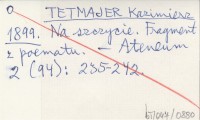 TETMAJER Kazimierz
1899. Na szczycie. Fragment
z poematu. - Ateneum
2 (94): 235-242.